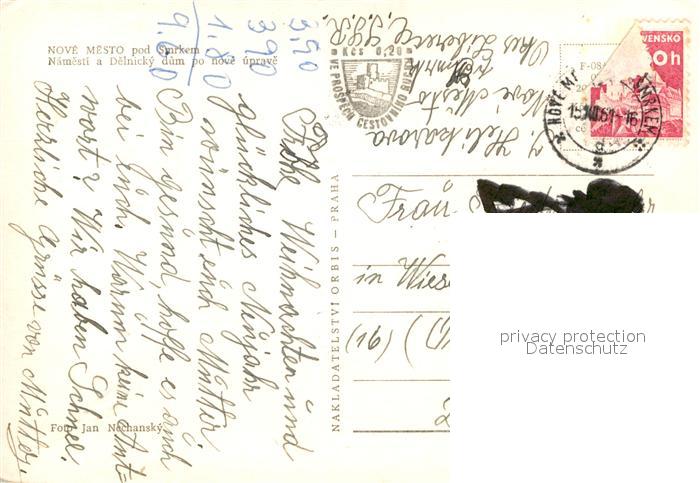 NOVÉ MĚSTO pod Smrkem
Náměstí a Dělnický dům po nové úpravě
3,50
3,90
1.80
9.60
Frohe Weihnachten und
glückliches Neujahr
wünscht euch Mutter
Bin gesund, hoffe es auch
bei Euch. Warum keine Ant-
wort? Wir haben Schnee.
Herzliche Grüsse von Mutter.
Foto Jan Nechanský
NAKLADATELSTVÍ ORBIS – PRAHA
Kčs 0,20
VE PROSPĚCH CESTOVNÍHO
J. Helikarova
Nové Město
Okres Liberec ČSSR
VENSKO
0h
F-08
NOVÉ MĚ SMRKEM
in Wies
privacy protection
Datenschutz